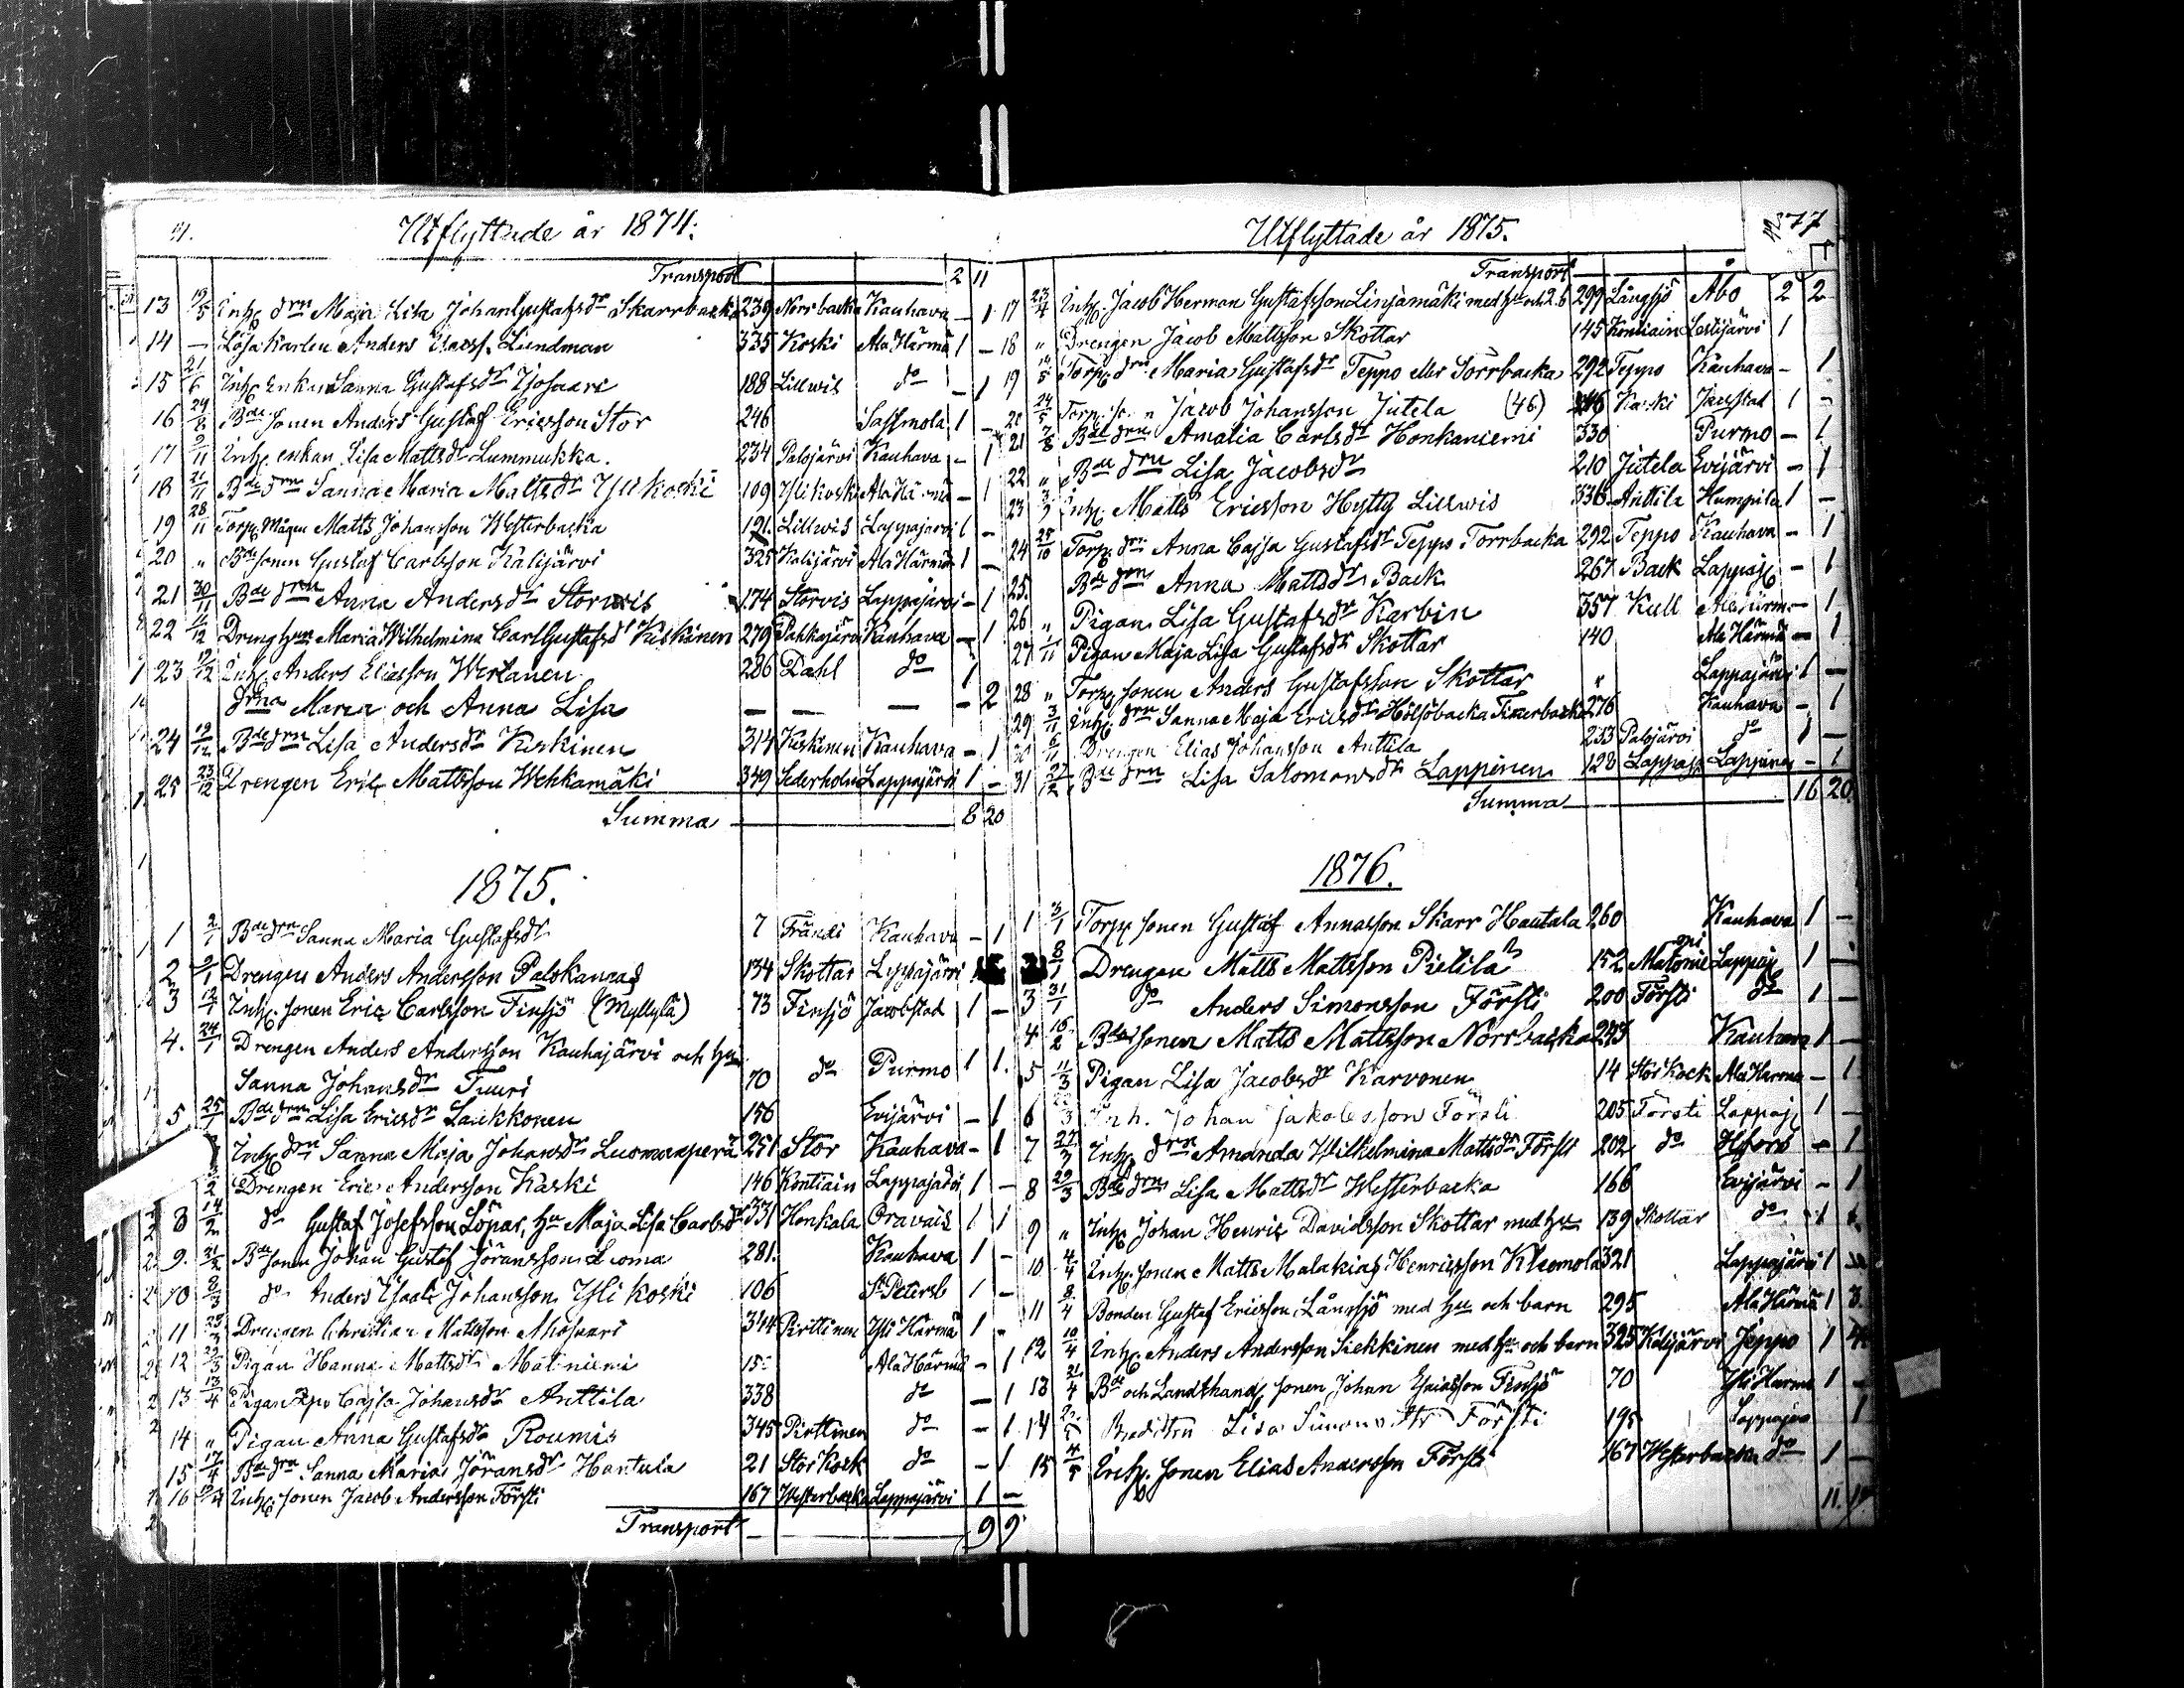 Utflyttade år 1874.
Transport 2 11
13 19/5 Inh. drn Maja Lisa JohanGustafsdr Skarrbacka 239 Norrbacka Kauhava – 1
14 – Lösa Karlen Anders Lundman 335 Koski Ala Härmä 1 –
15 21/6 Inh. Enkan Sanna Gustafsdr 188 Lillwis do – 1
16 24/8 Bde Sonen Anders Gustaf Ericsson Stor 246 Sastmola 1 –
17 9/11 Inh. enkan Lisa Mattsdr Lummukka 234 Palojärvi Kauhava – 1
18 21/11 Bde drn Sanna Maria Mattsdr Yli koski 109 Ylikoski Ala Härmä – 1
19 28/11 Torp. Mågen Matts Johansson Westerbacka 191 Lillwis Lappajärvi 1 –
20 " Bde Sonen Gustaf Carlsson Kälijärvi 325 Kälijärvi Ala Härmä 1 –
21 30/11 Bde drn Anna Andersdr Storwis 174 Storvis Lappajärvi – 1
22 11/12 Dreng hun Maria Wilhelmina CarlGustafsdr Kiskinen 279 Pahkajärvi Kauhava – 1
23 12/12 Inh. Anders Eliasson Wertanen 286 Dahl do 1
drna Maria och Anna Lisa – – – – 2
24 19/12 Bde drn Lisa Andersdr Kiskinen 314 Kiskinen Kauhava – 1
25 23/12 Drengen Eric Mattsson Wehkamäki 349 Sederholm Lappajärvi 1 –
Summa 8 20
1875.
1 2/1 Bde drn Sanna Maria Gustafsdr 7 Frändi Kauhava – 1
2 9/1 Drengen Anders Andersson Palokangas 134 Skottar Lappajärvi
3 12/1 Inh. Sonen Eric Carlsson Finsjö (Myllylä) 73 Finsjö Jacobstad 1 –
4. 24/1 Drengen Anders Andersson Kauhajärvi och hu
Sanna Johansdr Tuuri 70 do Purmo 1 1.
5 25/1 Bde drn Lisa Ericsdr Laukkonen 156 Evijärvi – 1
Inh. drn Sanna Maja Johansdr Luomanperä 251 Stor Kauhava – 1
2 Drengen Eric Andersson Kaski 146 Kontiain Lappajärvi 1 –
8 14/2 do Gustaf Josefsson Löpar, hu Maja Lisa Carlsdr 331 Honkala Oravais 1 1
9. 21/2 Bde Sonen Johan Gustaf Göransson Luoma 281. Kauhava 1 –
10 8/3 do Anders Esaias Johansson Yli koski 106 St Petersb 1 –
11 Drengen Christian Mattsson 344 Pirttinen Yli Härmä 1 –
12 22/3 Pigan Hanna Mattsdr Matiniemi Ala Härmä – 1
13 13/4 Pigan Cajsa Johansdr Anttila 338 do – 1
14 " Pigan Anna Gustafsdr Roumis 345 Pirttinen do – 1
15 17/4 Bde drn Sanna Maria Göransdr Hantula 21 Stor Kock do – 1
16 Inh. Sonen Jacob Andersson Försti 167 Westerbacka Lappajärvi 1 –
Transport 9 9
Utflyttade år 1875.
377
Transport 2 2
17 23/4 Inh. Jacob Herman Gustafsson Linjamäki med hu och 2 b 299 Långsjö Åbo
18 " Drengen Jacob Mattsson Skottar 145 Kontiain Lestijärvi 1
19 Torp. drn Maria Gustafsdr Teppo eller Torrbacka 292 Teppo Kauhava – 1
20 24/5 Torp. Sonen Jacob Johansson Jutela (46) Kaski Jacobstad 1 –
21 7/8 Bde drn Amalia Carlsdr Honkaniemi 330 Purmo – 1
22 " Bde drn Lisa Jacobsdr 210 Jutela Evijärvi – 1
23 Inh. Matts Ericsson Hytty Lillwis 336 Anttila Humpila 1 –
24 Torp. drn Anna Cajsa Gustafsdr Teppo Torrbacka 292 Teppo Kauhava – 1
25. Bde drn Anna Mattsdr Back 267 Back Lappaj. – 1
26 " Pigan Lisa Gustafsdr Karbin 357 Kull Ala Härmä – 1
27 1/11 Pigan Maja Lisa Gustafsdr Skottar 140 Ala Härmä – 1
28 " Torp. Sonen Anders Gustafsson Skottar " Lappajärvi 1 –
29 3/11 Inh. drn Sanna Maja Ericsdr 276 Kauhava – 1
30 6/11 Drengen Elias Johansson Anttila 233 Palojärvi do 1 –
31 27/12 Bde drn Lisa Salomonsdr Lappinen 128 Lappaj. – 1
Summa 16 20.
1876.
1 3/1 Torp. Sonen Gustaf Annasson Skarr Hautala 260 Kauhava 1 –
8/1 Drengen Matts Mattsson Pietilä 152 Lappaj. 1 –
3 31/1 do Anders Simonsson Försti 200 Försti do 1 –
4 16/2 Bde Sonen Matts Mattsson Norrbacka 243 Kauhava 1 –
5 11/3 Pigan Lisa Jacobsdr Karvonen 14 Stor Kock Ala Härmä – 1
6 Inh. Johan Jakobsson Försti 205 Försti Lappaj. 1 –
7 27/3 Inh. drn Amanda Wilhelmina Mattsdr Försti 202 do Hfors – 1
8 29/3 Bde drn Lisa Mattsdr Westerbacka 166 Evijärvi – 1
9 " Inh. Johan Henric Davidsson Skottar med hu 139 Skottar do 1 1
10 4/4 Inh. Sonen Matts Malakias Henricsson Kleemola 321 Lappajärvi 1 –
11 8/4 Bonden Gustaf Ericsson Långsjö med hu och barn 295 Ala Härmä 1 3
12 10/4 Inh. Anders Andersson Kiekkinen med hu och barn 325 Kälijärvi Jeppo 1 4
13 21/4 Bde och Landthandl. Sonen Johan Esaiasson Finsjö 70 Yli Härmä 1 –
14 Bondedtrn Lisa Simonsdtr Försti 195 Lappajärvi 1
15 4/5 Inh. Sonen Elias Andersson Försti 167 Westerbacka do 1 –
11.